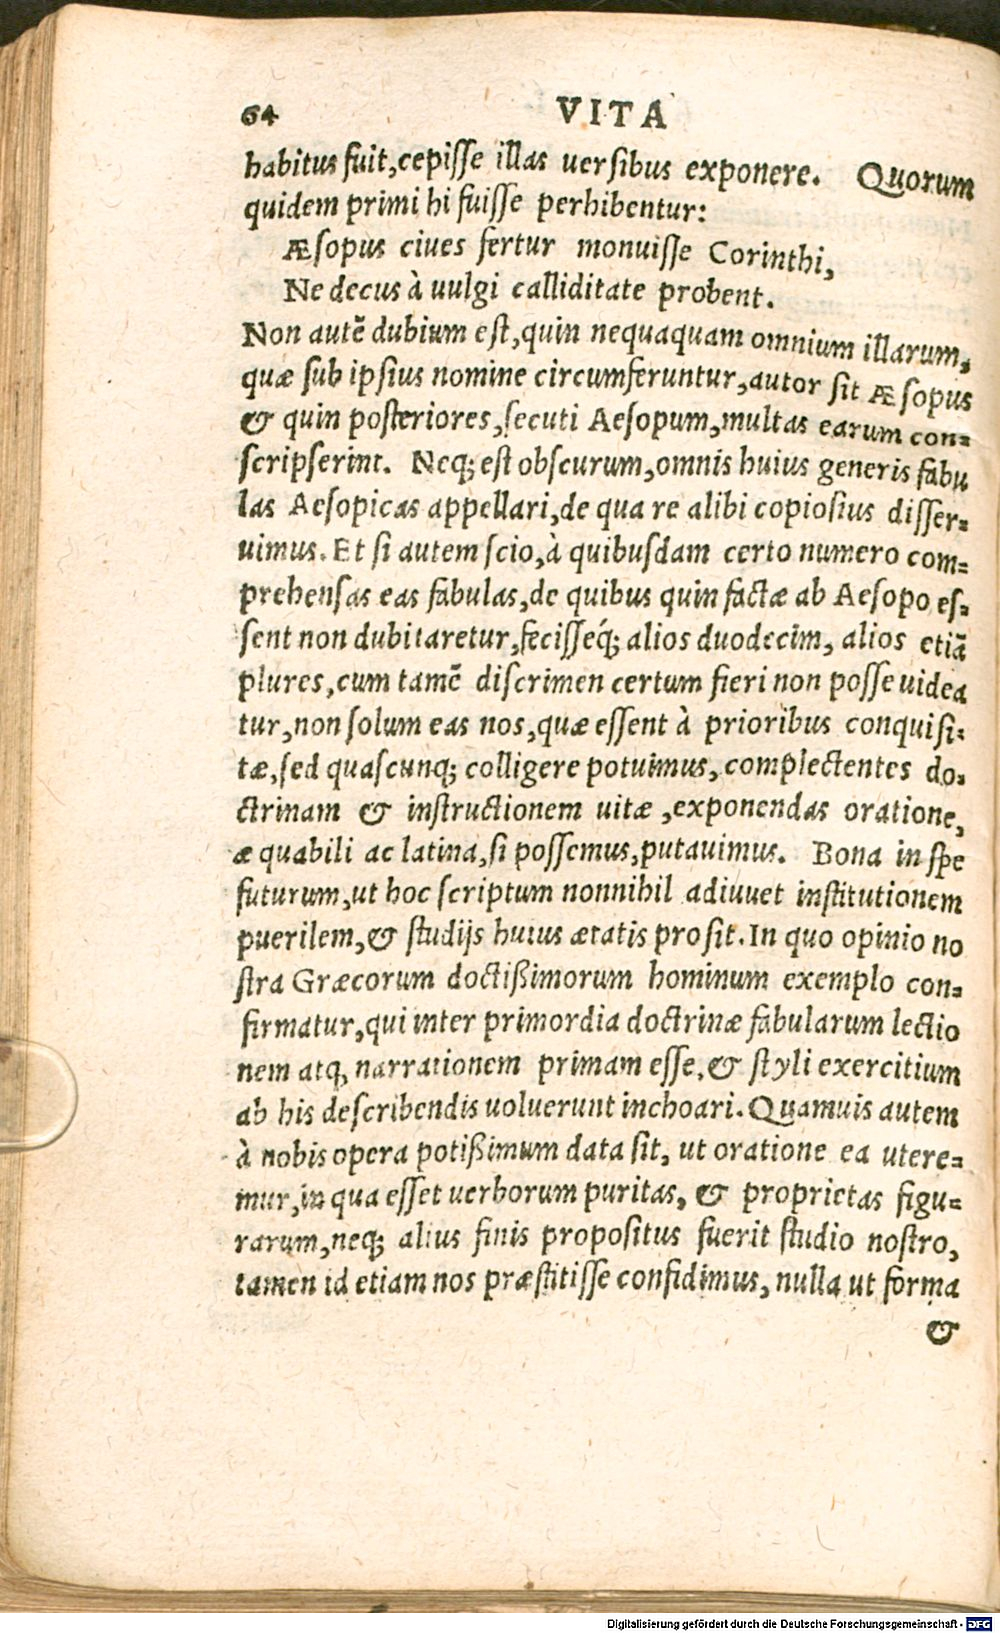 64 VITA
habitus fuit, cepisse illas uersibus exponere. Quorum
quidem primi hi fuisse perhibentur:
Æsopus ciues fertur monuisse Corinthi,
Ne decus à uulgi calliditate probent.
Non autē dubium est, quin nequaquam omnium illarum,
quæ sub ipsius nomine circumferuntur, autor sit Æsopus
& quin posteriores, secuti Aesopum, multas earum con=
scripserint. Neq; est obscurum, omnis huius generis fabu
las Aesopicas appellari, de qua re alibi copiosius disser=
uimus. Et si autem scio, à quibusdam certo numero com=
prehensas eas fabulas, de quibus quin factæ ab Aesopo es=
sent non dubitaretur, fecisseq́; alios duodecim, alios etiā
plures, cum tamē discrimen certum fieri non posse uidea
tur, non solum eas nos, quæ essent à prioribus conquisi=
tæ, sed quascunq; colligere potuimus, complectentes do=
ctrinam & instructionem uitæ, exponendas oratione,
æquabili ac latina, si possemus, putauimus. Bona in spe
futurum, ut hoc scriptum nonnihil adiuuet institutionem
puerilem, & studijs huius ætatis prosit. In quo opinio no
stra Græcorum doctißimorum hominum exemplo con=
firmatur, qui inter primordia doctrinæ fabularum lectio
nem atq; narrationem primam esse, & styli exercitium
ab his describendis uoluerunt inchoari. Quamuis autem
à nobis opera potißimum data sit, ut oratione ea utere=
mur, in qua esset uerborum puritas, & proprietas figu=
rarum, neq; alius finis propositus fuerit studio nostro,
tamen id etiam nos præstitisse confidimus, nulla ut forma
&
Digitalisierung gefördert durch die Deutsche Forschungsgemeinschaft - DFG